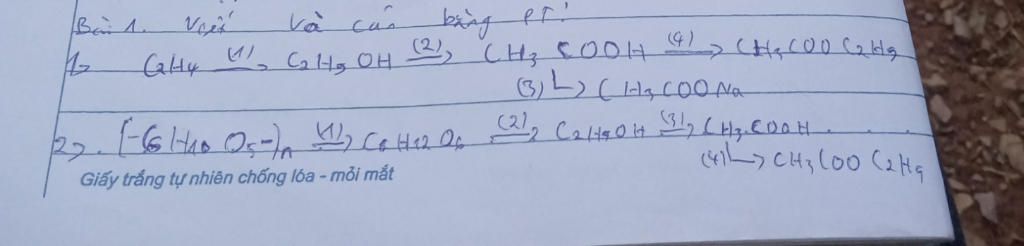 Bài 1. Viết và cân bằng PT:
1> C2H4 (1)→ C2H5OH (2)→ CH3COOH (4)→ CH3COOC2H5
(3)↳ CH3COONa
2>. [-C6H10O5-)n (1)→ C6H12O6 (2)→ C2H5OH (3)→ CH3COOH
(4)↳ CH3COOC2H5
Giấy trắng tự nhiên chống lóa - mỏi mắt